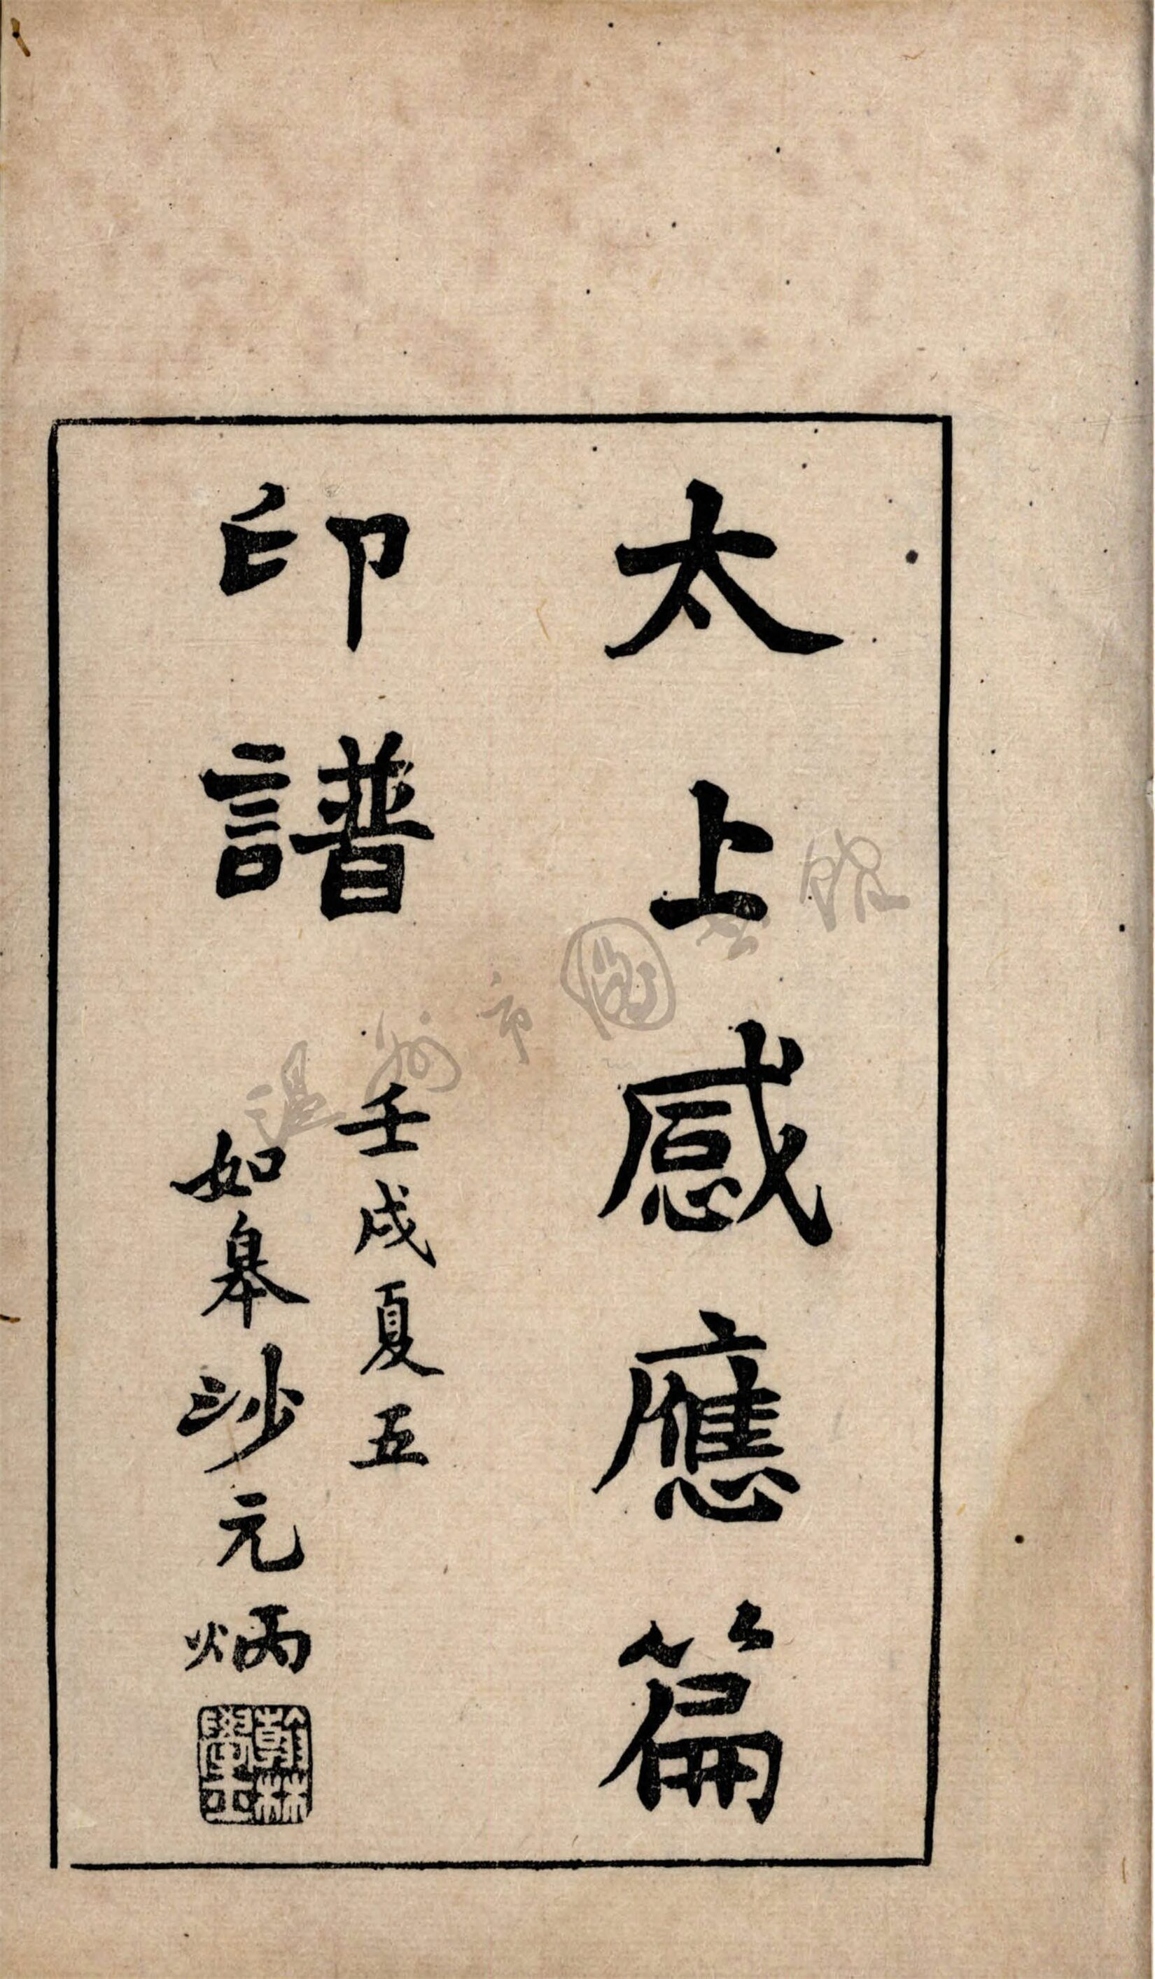 太上感應篇
印譜
壬戌夏五
如皋沙元炳
翰林學士
溫州市圖書館